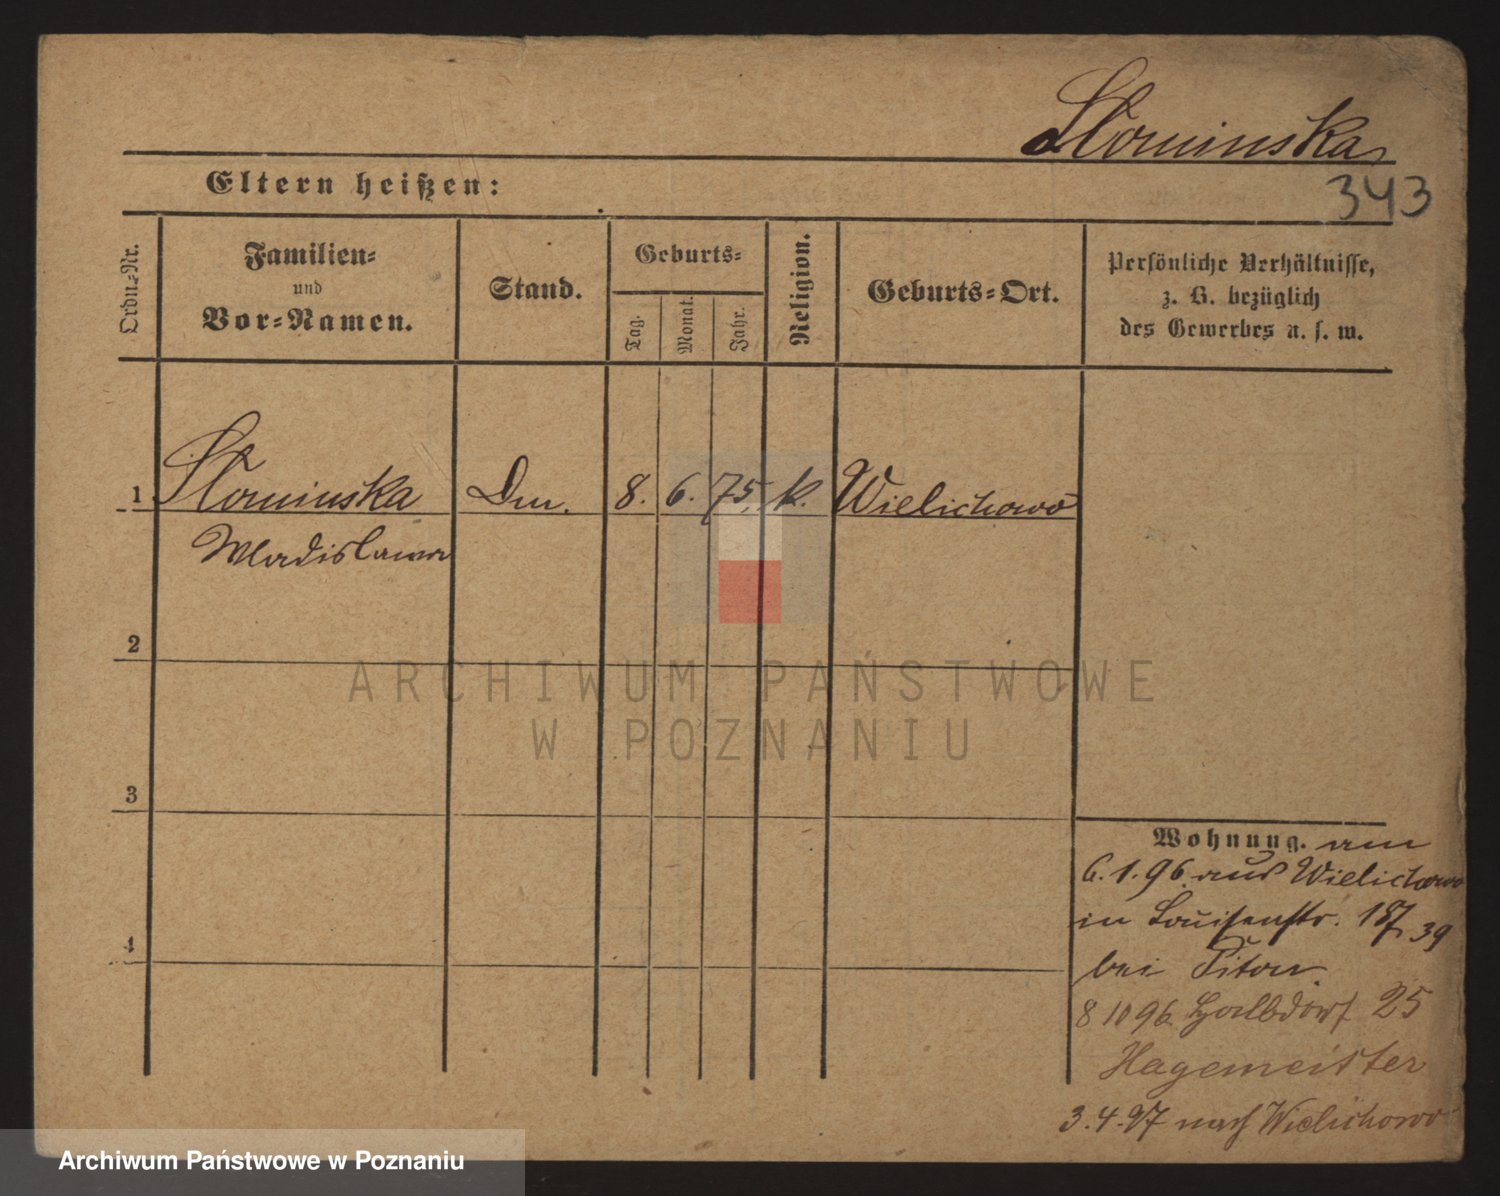 Slominska
343
Eltern heißen:
Ordn.-Nr.
Familien-
und
Vor-Namen.
Stand.
Geburts-
Tag.
Monat.
Jahr.
Religion.
Geburts-Ort.
Persönliche Verhältnisse,
z. B. bezüglich
des Gewerbes u. s. w.
1 Slominska Dm. 8. 6. 75. k. Wielichowo
Wladislawa
2
3
4
Wohnung. am
6.1.96 aus Wielichowo
in Louisenstr. 187 39
bei
8 10 96 Halbdorf 25
Hagemeister
3.4.97 nach Wielichowo
ARCHIWUM PAŃSTWOWE
W POZNANIU
Archiwum Państwowe w Poznaniu